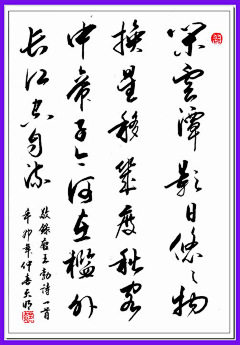 閑雲潭影日悠悠物
換星移幾度秋閣
中帝子今何在檻外
長江空自流
敬錄唐王勃詩一首
辛卯年仲春